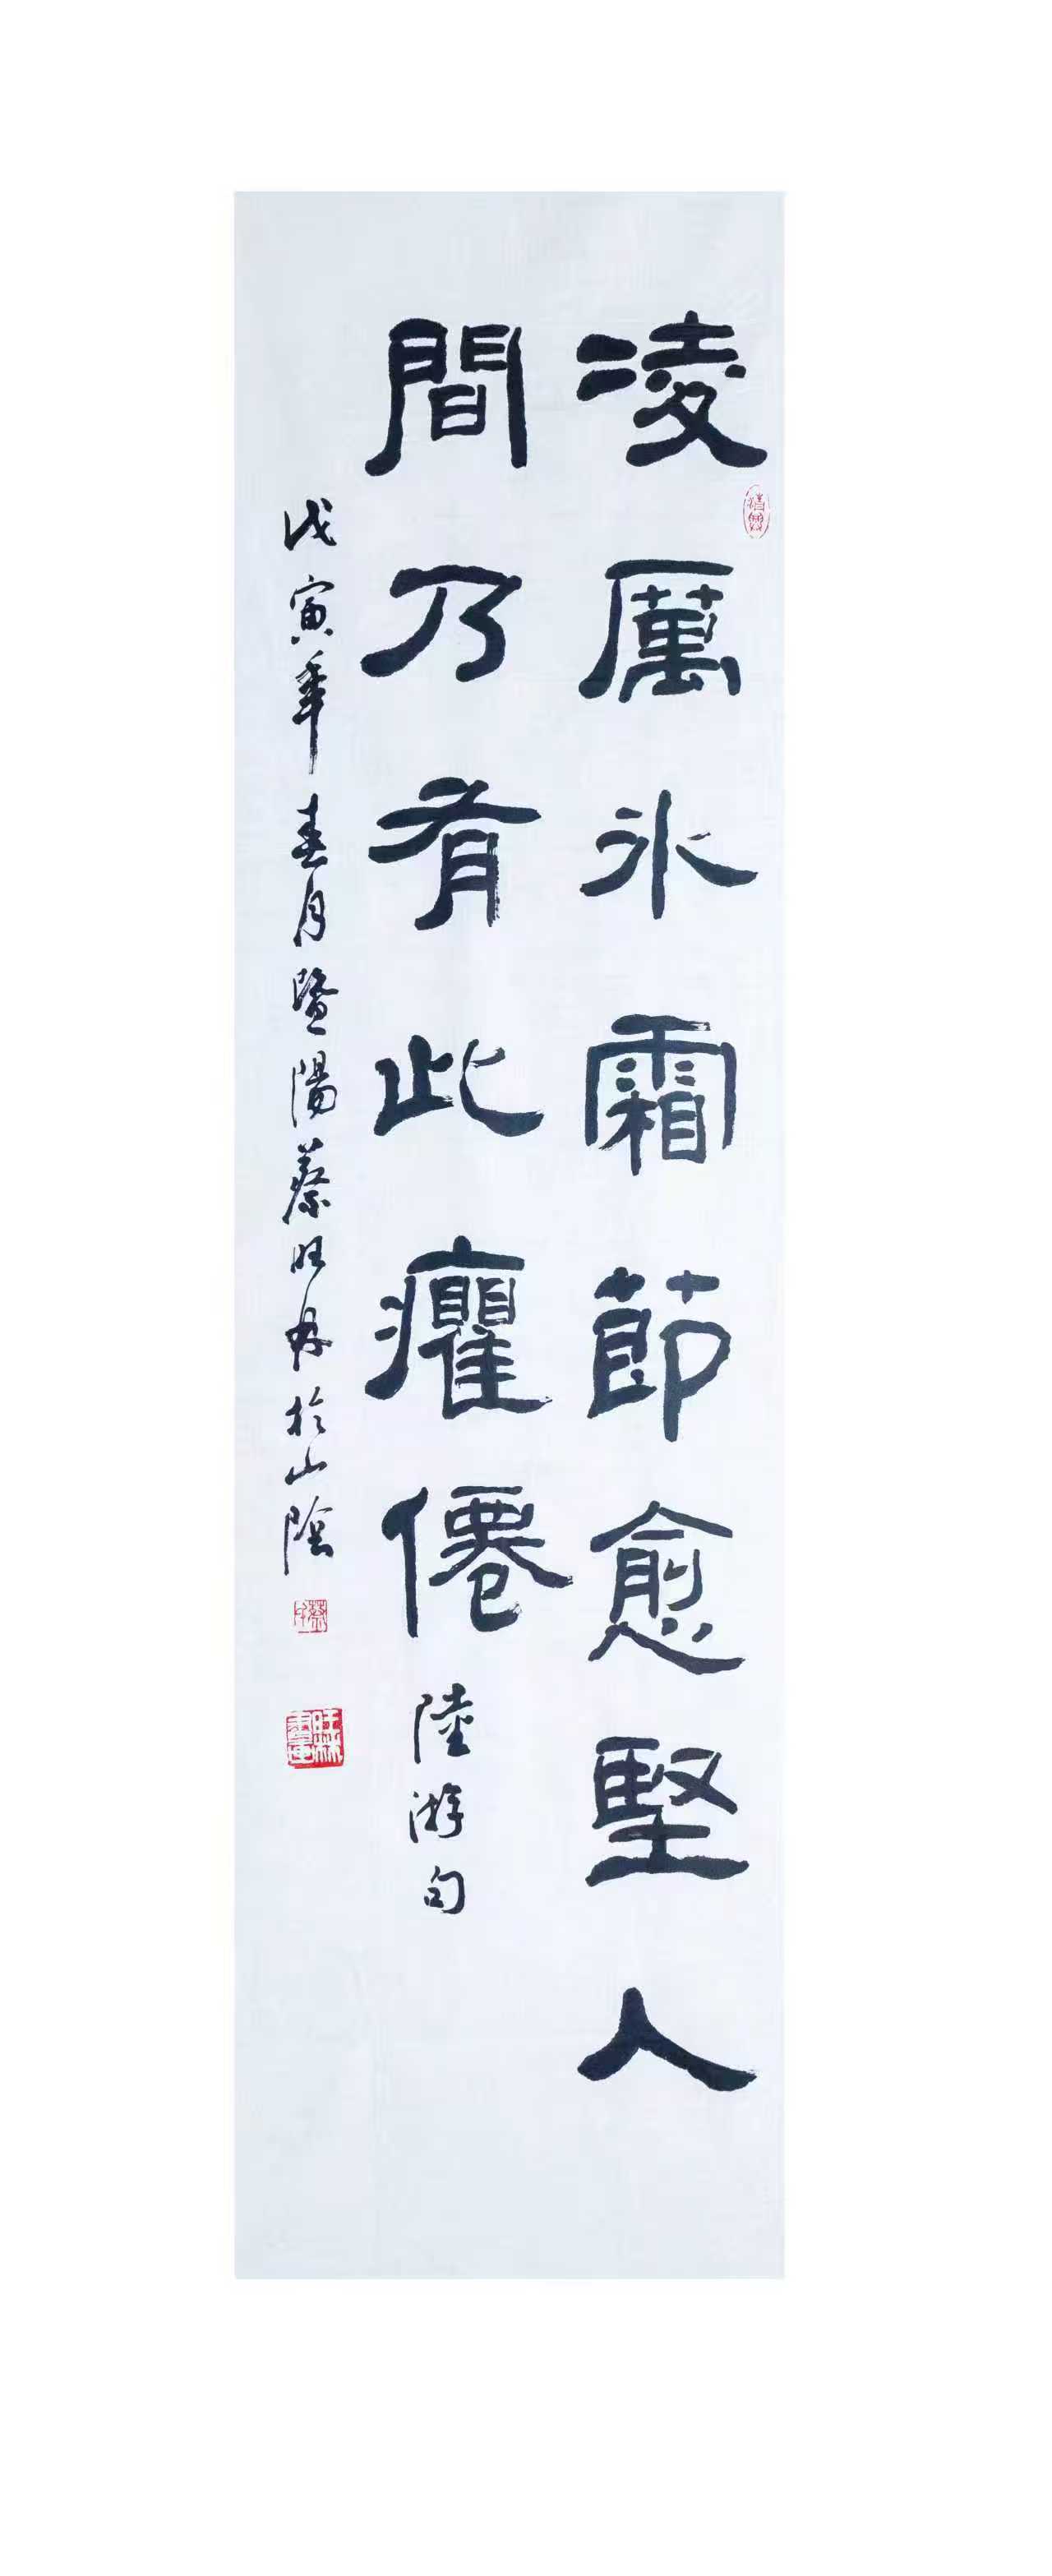 凌厲冰霜節愈堅人
間乃有此癯僊
陸游句
戊寅年春月暨陽蔡旺林於山陰